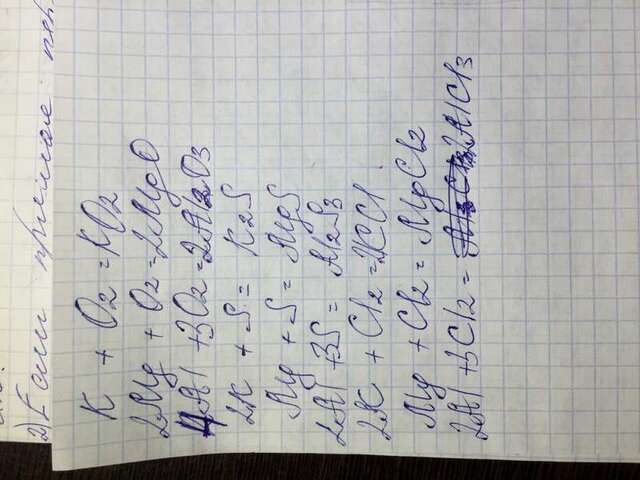 2) Если
K + O2 = KO2
2Mg + O2 = 2MgO
4Al + 3O2 = 2Al2O3
2K + S = K2S
Mg + S = MgS
2Al + 3S = Al2S3
2K + Cl2 = 2KCl
Mg + Cl2 = MgCl2
2Al + 3Cl2 = 2AlCl3